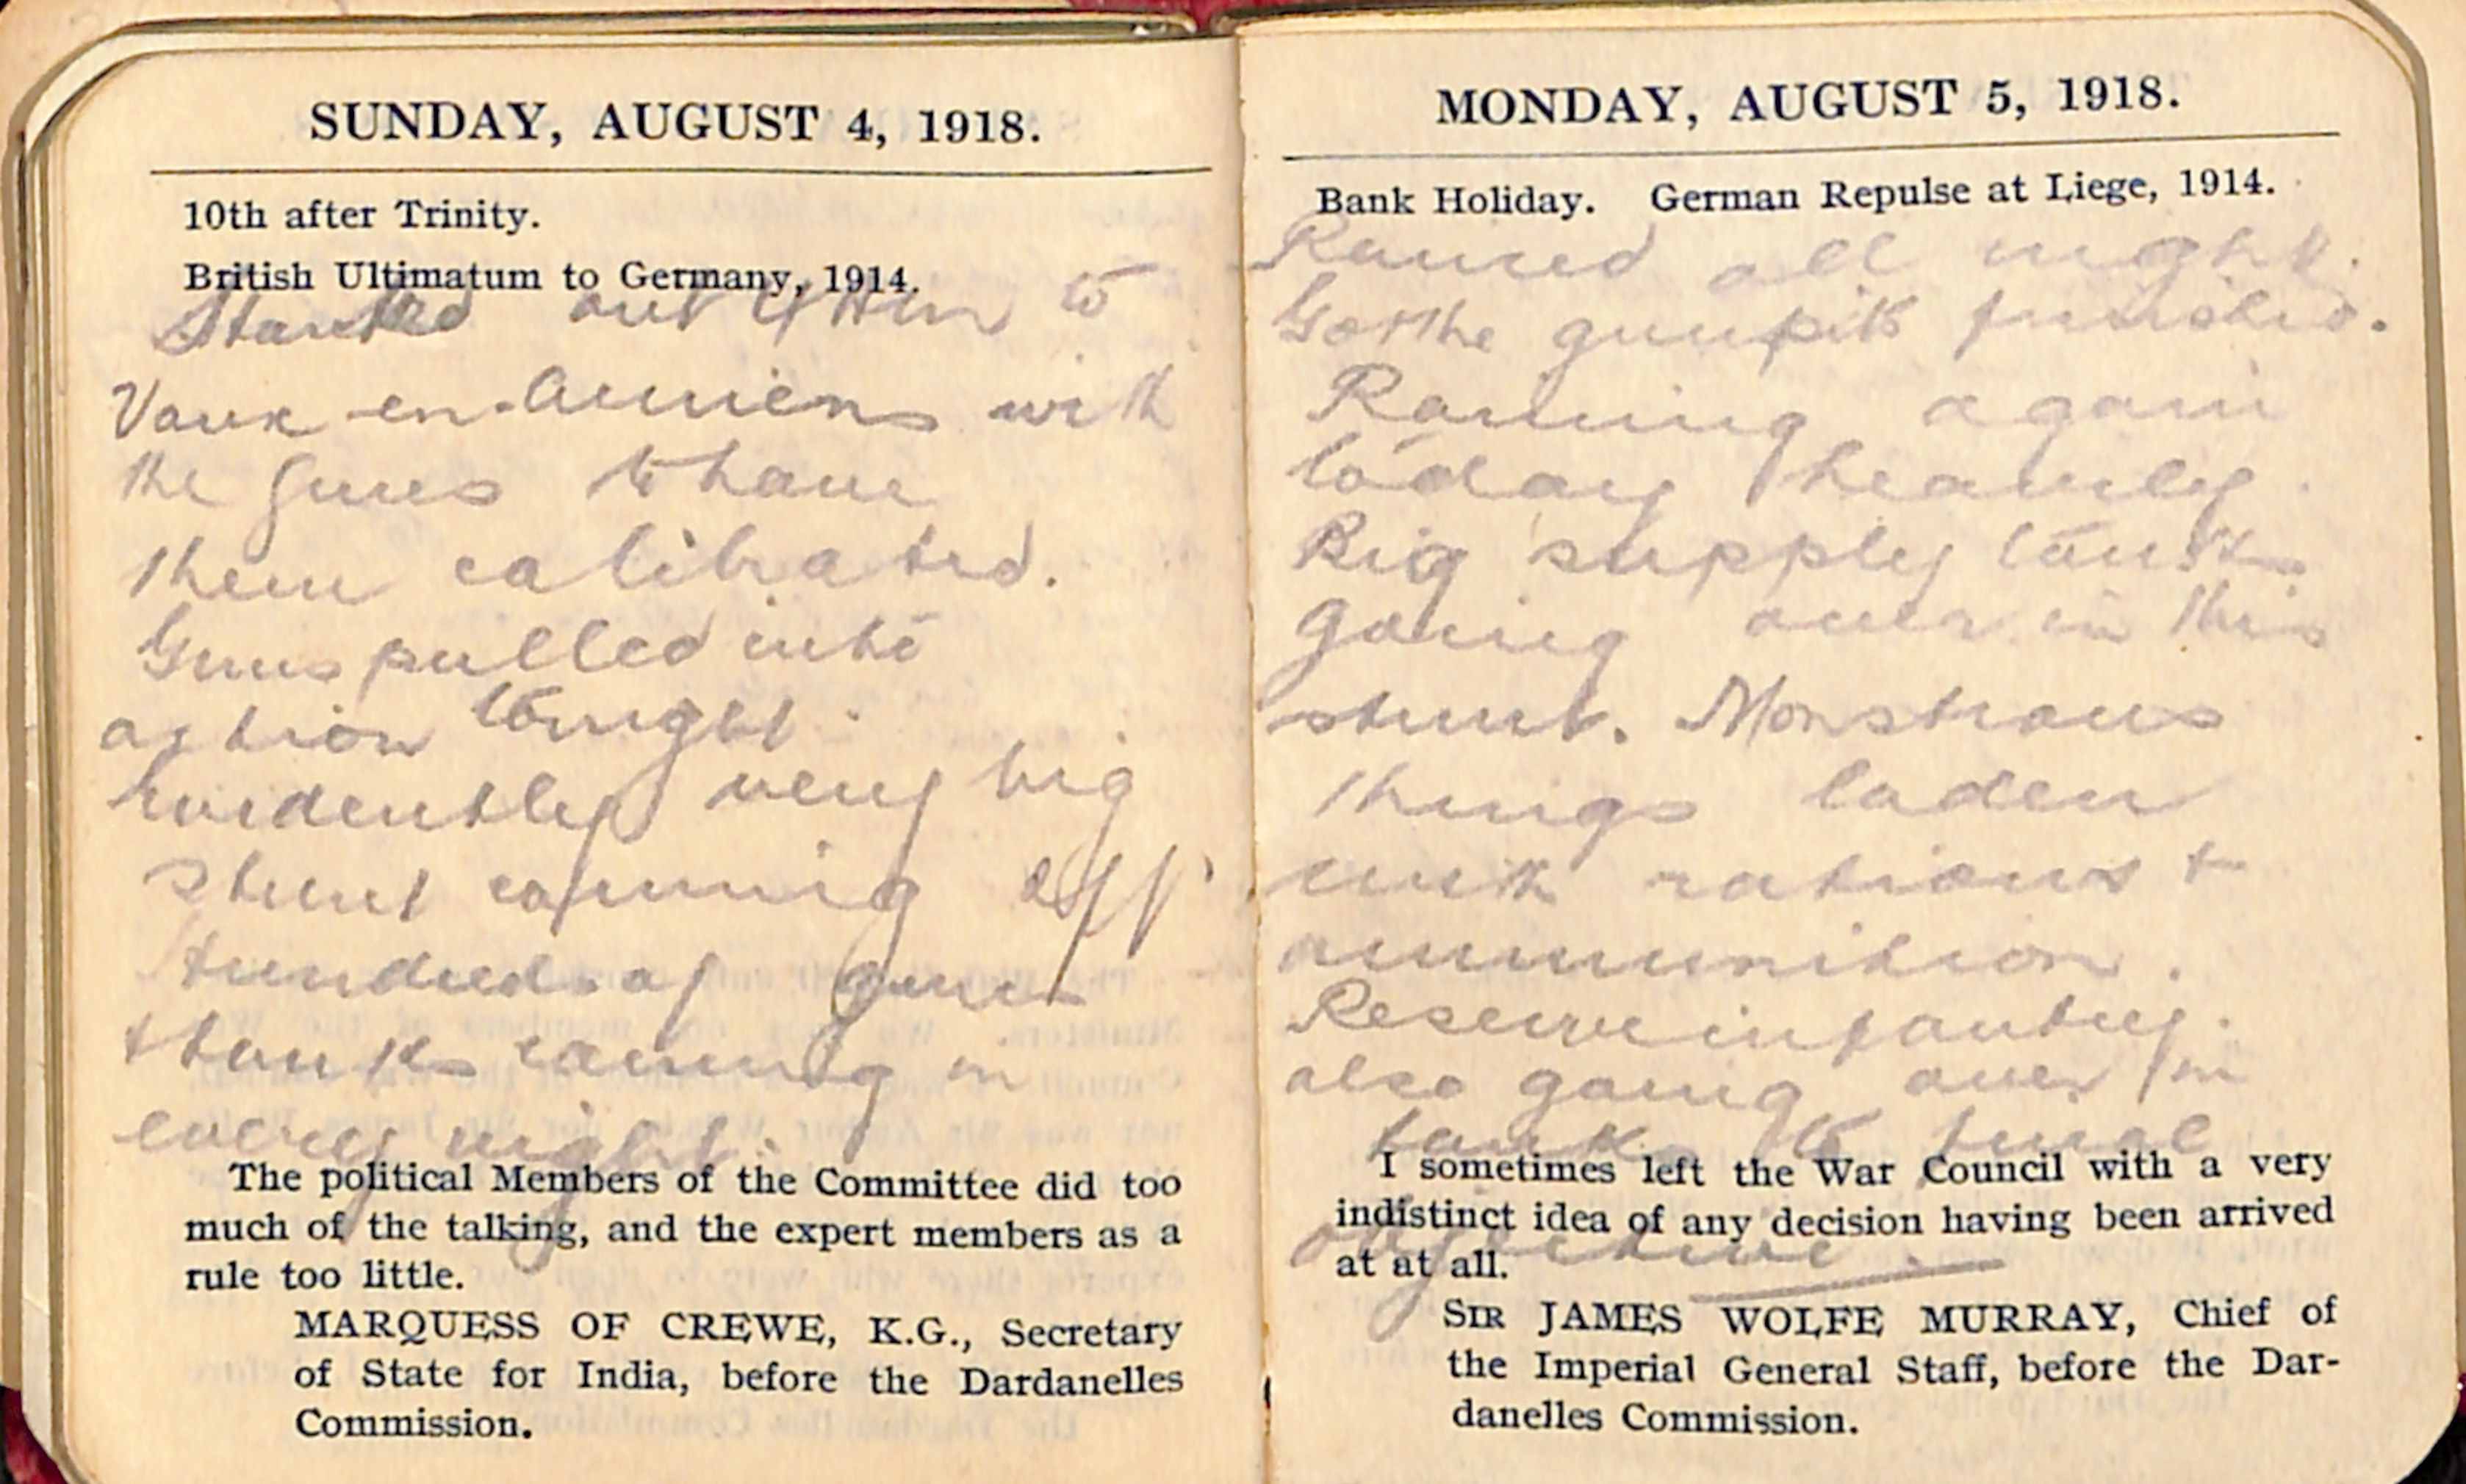 SUNDAY, AUGUST 4, 1918.
10th after Trinity.
British Ultimatum to Germany, 1914.
Started out to
Vaux-en-Amiens with
the guns to have
them calibrated.
Guns pulled into
action tonight.
Evidently very big
stunt coming off
Hundreds of guns
& tanks coming in
every night.
The political Members of the Committee did too
much of the talking, and the expert members as a
rule too little.
MARQUESS OF CREWE, K.G., Secretary
of State for India, before the Dardanelles
Commission.
MONDAY, AUGUST 5, 1918.
Bank Holiday. German Repulse at Liege, 1914.
Rained all night.
Got the gunpits finished.
Raining again
today heavily.
Big supply tanks
going over in this
stunt. Monstrous
things laden
with rations &
ammunition.
Reserve infantry
also going over in
tanks to final
objective.
I sometimes left the War Council with a very
indistinct idea of any decision having been arrived
at at all.
SIR JAMES WOLFE MURRAY, Chief of
the Imperial General Staff, before the Dar-
danelles Commission.